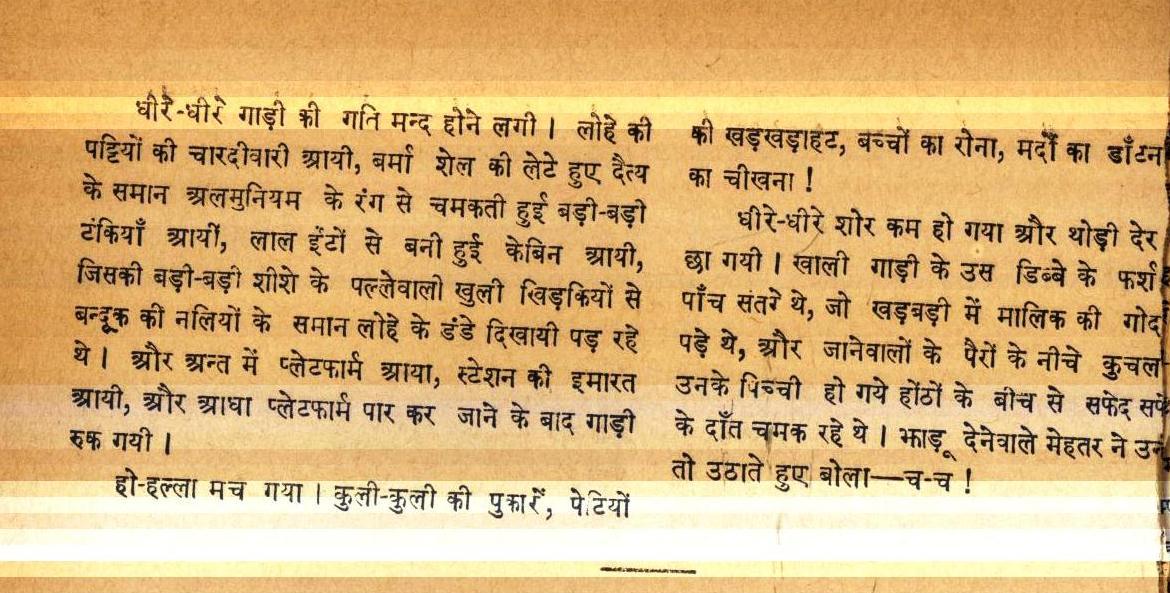 धीरे-धीरे गाड़ी की गति मन्द होने लगी । लोहे की
पट्टियों की चारदीवारी आयी, बर्मा शेल की लेटे हुए दैत्य
के समान अलमुनियम के रंग से चमकती हुई बड़ी-बड़ी
टंकियाँ आयीं, लाल ईंटों से बनी हुई केबिन आयी,
जिसकी बड़ी-बड़ी शीशे के पल्लेवाली खुली खिड़कियों से
बन्दूक की नलियों के समान लोहे के डंडे दिखायी पड़ रहे
थे । और अन्त में प्लेटफार्म आया, स्टेशन की इमारत
आयी, और आधा प्लेटफार्म पार कर जाने के बाद गाड़ी
रुक गयी ।
हो-हल्ला मच गया । कुली-कुली की पुकारें, पेटियों
की खड़खड़ाहट, बच्चों का रोना, मर्दों का डाँटन
का चीखना !
धीरे-धीरे शोर कम हो गया और थोड़ी देर
छा गयी । खाली गाड़ी के उस डिब्बे के फर्श
पाँच संतरे थे, जो खड़बड़ी में मालिक की गोद
पड़े थे, और जानेवालों के पैरों के नीचे कुचल
उनके पिच्ची हो गये होंठों के बीच से सफेद सफे
के दाँत चमक रहे थे । झाड़ू देनेवाले मेहतर ने उन
तो उठाते हुए बोला—च-च !